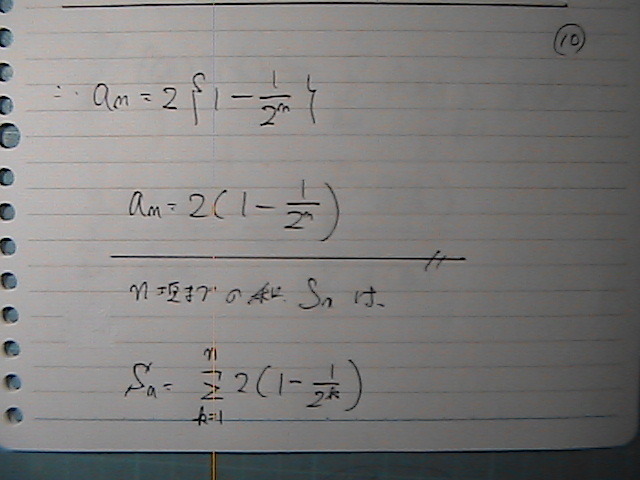 ⑩
∴ aₙ = 2 { 1 - 1/2ⁿ }
aₙ = 2 ( 1 - 1/2ⁿ )
n 項までの和 Sₙ は、
Sₙ = Σₖ₌₁ⁿ 2 ( 1 - 1/2ᵏ )